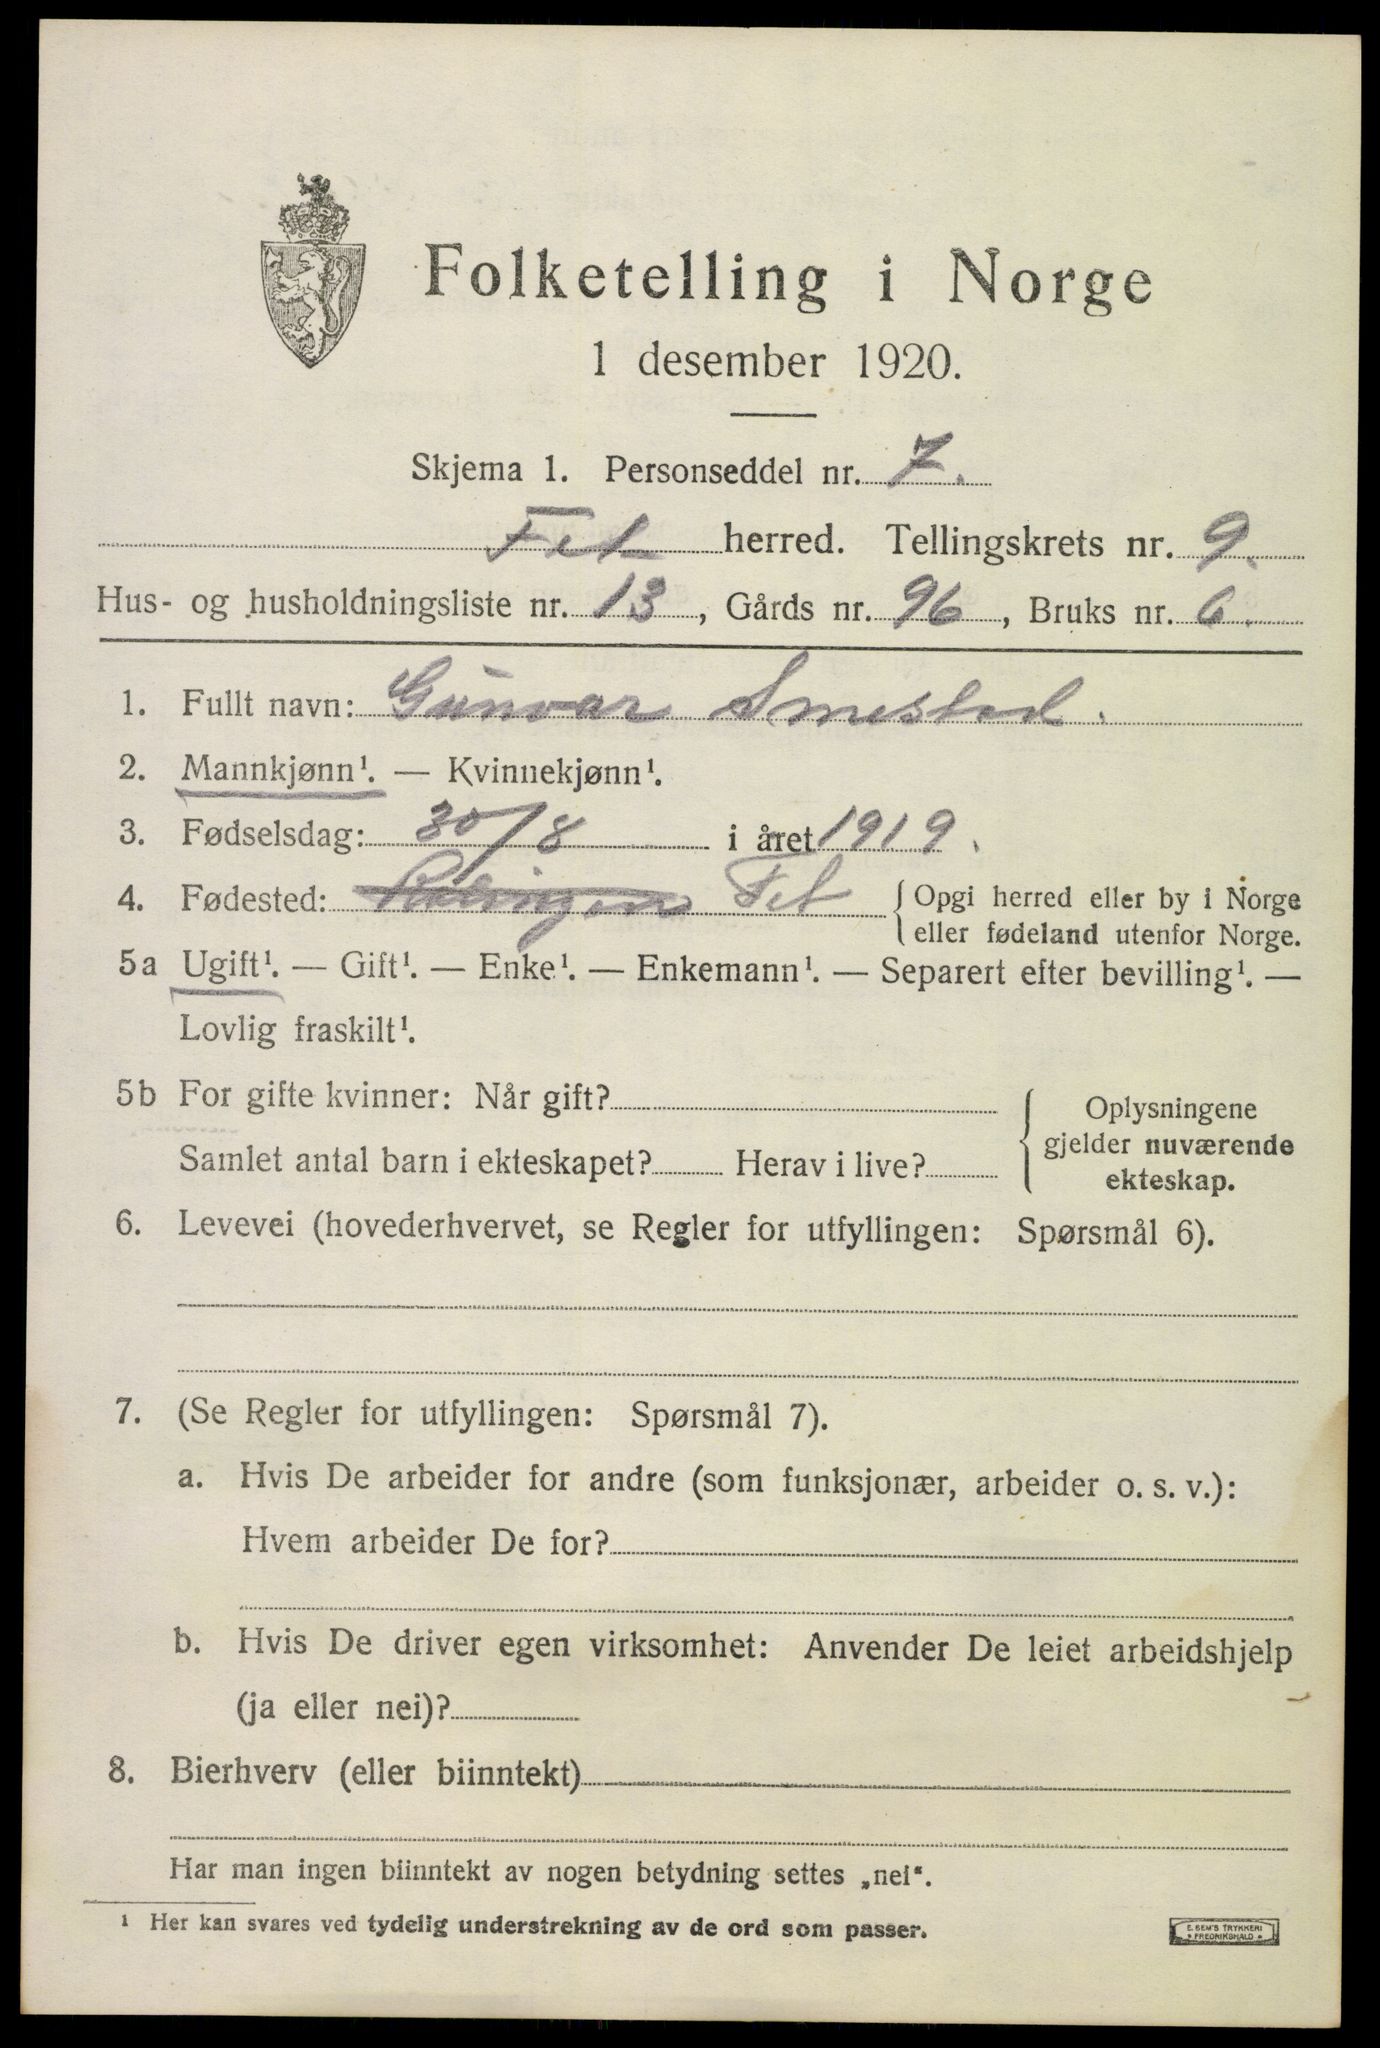 Folketelling i Norge
1 desember 1920.
Skjema 1. Personseddel nr. 7.
Fet herred. Tellingskrets nr. 9.
Hus- og husholdningsliste nr. 13, Gårds nr. 96, Bruks nr. 6.
1. Fullt navn: Gunvar Smestad.
2. Mannkjønn¹. — Kvinnekjønn¹.
3. Fødselsdag: 30/8 i året 1919.
4. Fødested: Rælingen Fet { Opgi herred eller by i Norge
eller fødeland utenfor Norge.
5a Ugift¹. — Gift¹. — Enke¹. — Enkemann¹. — Separert efter bevilling¹. —
Lovlig fraskilt¹.
5b For gifte kvinner: Når gift?
Samlet antal barn i ekteskapet? Herav i live?
{ Oplysningene
gjelder nuværende
ekteskap.
6. Levevei (hovederhvervet, se Regler for utfyllingen: Spørsmål 6).
7. (Se Regler for utfyllingen: Spørsmål 7).
a. Hvis De arbeider for andre (som funksjonær, arbeider o. s. v.):
Hvem arbeider De for?
b. Hvis De driver egen virksomhet: Anvender De leiet arbeidshjelp
(ja eller nei)?
8. Bierhverv (eller biinntekt)
Har man ingen biinntekt av nogen betydning settes „nei“.
¹ Her kan svares ved tydelig understrekning av de ord som passer.
E. SEM'S TRYKKERI
• FREDRIKSHALD •